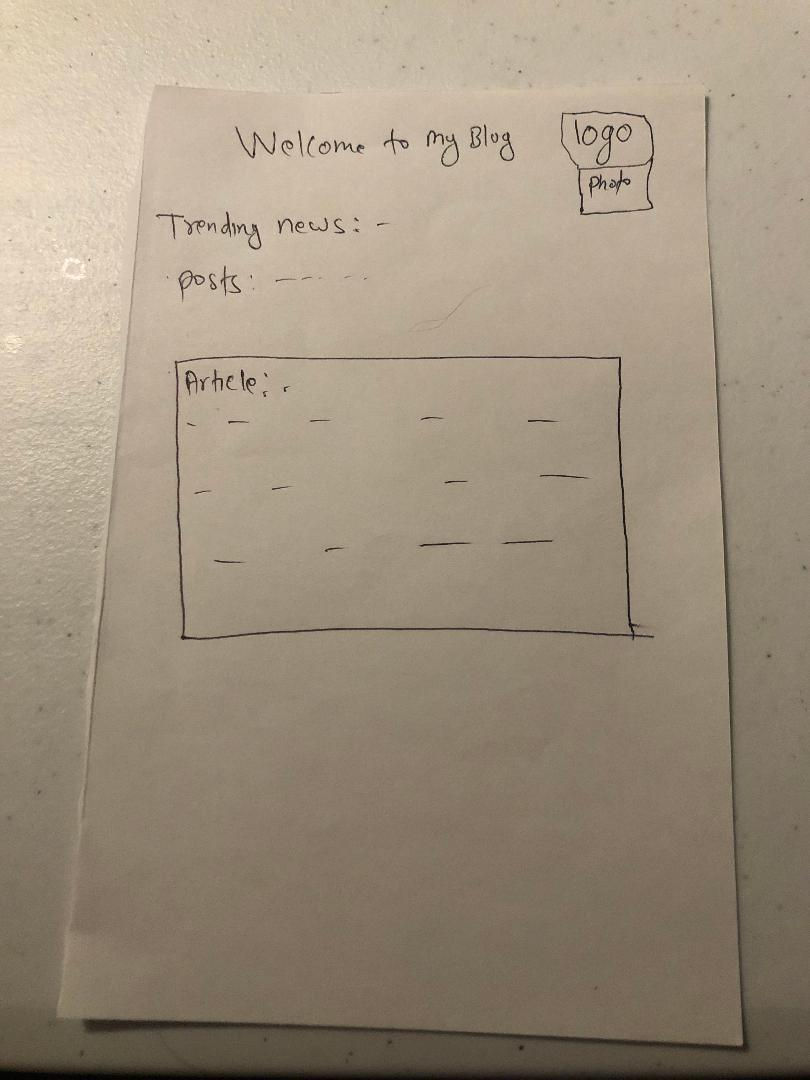 Welcome to my Blog
logo
photo
Trending news: -
posts: -- -- - -
Article: .
- - - - -
- - - -
- - - -